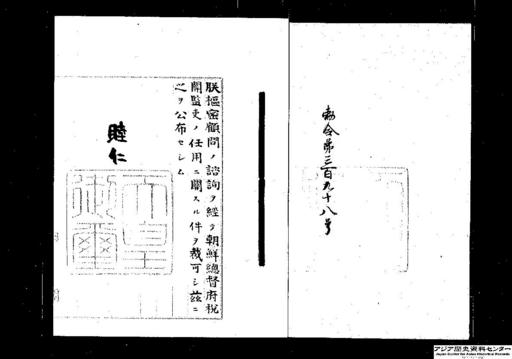 勅令第三百九十八号
朕樞密顧問ノ諮詢ヲ經テ朝鮮總督府稅
關監吏ノ任用ニ關スル件ヲ裁可シ茲ニ
之ヲ公布セシム
睦仁
天皇
御璽
アジア歴史資料センター
Japan Center for Asian Historical Records